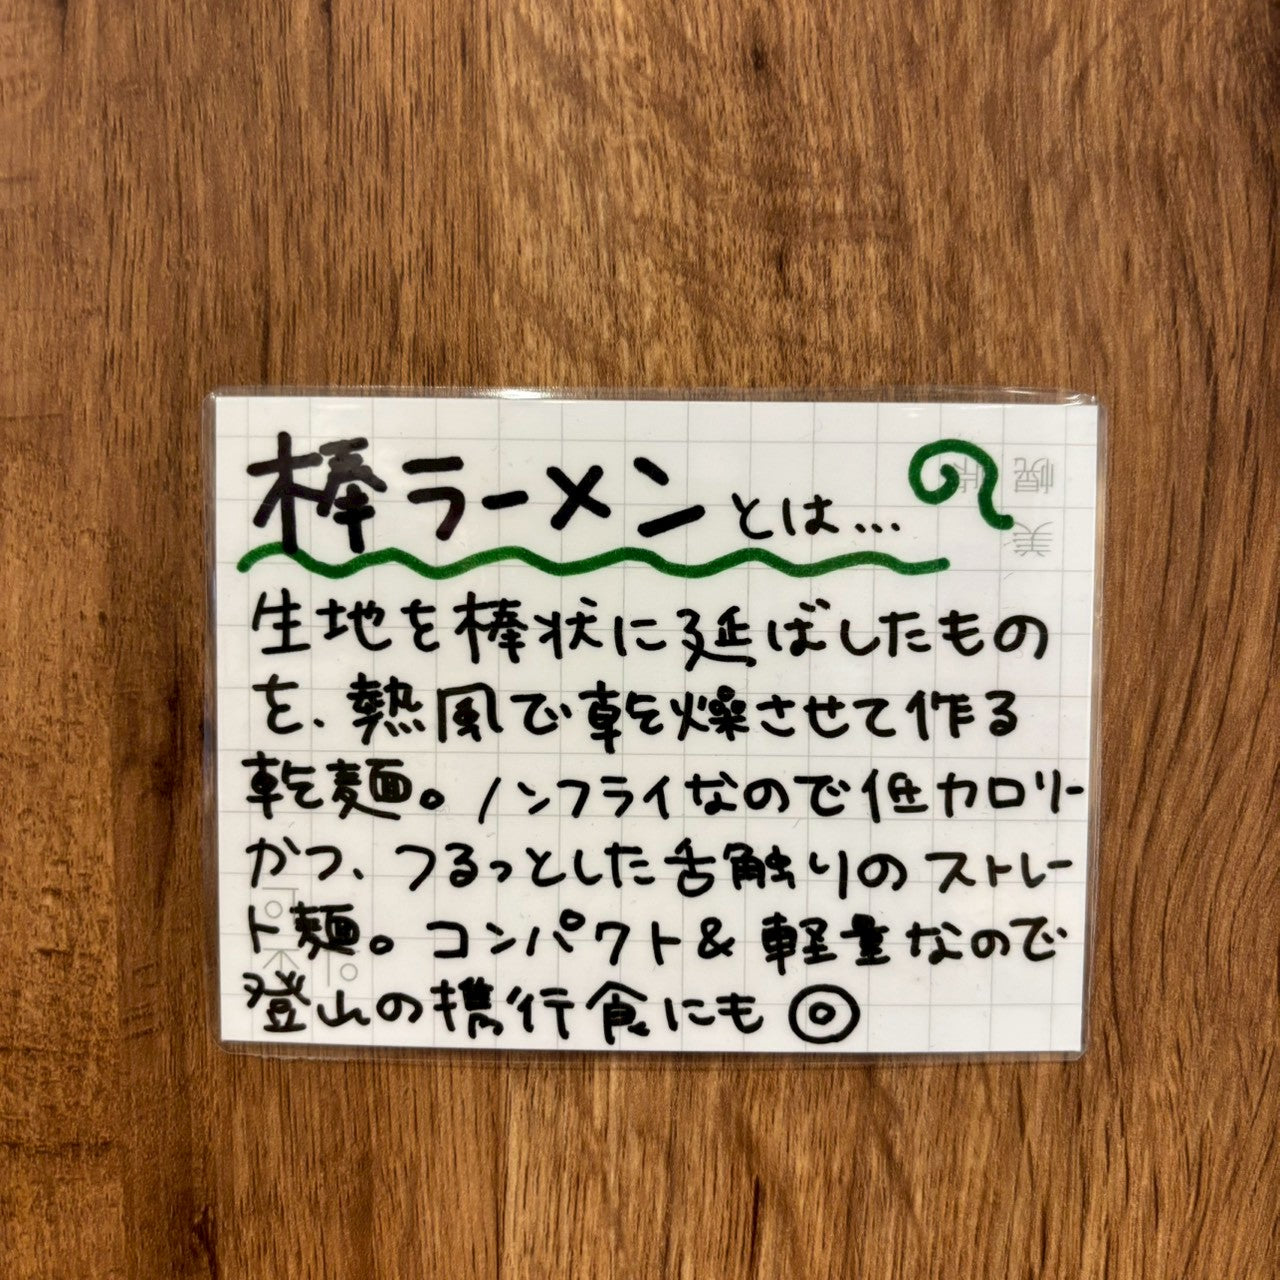 棒ラーメンとは…
生地を棒状に延ばしたもの
を、熱風で乾燥させて作る
乾麺。ノンフライなので低カロリー
かつ、つるっとした舌触りのストレー
ト麺。コンパクト&軽量なので
登山の携行食にも◎